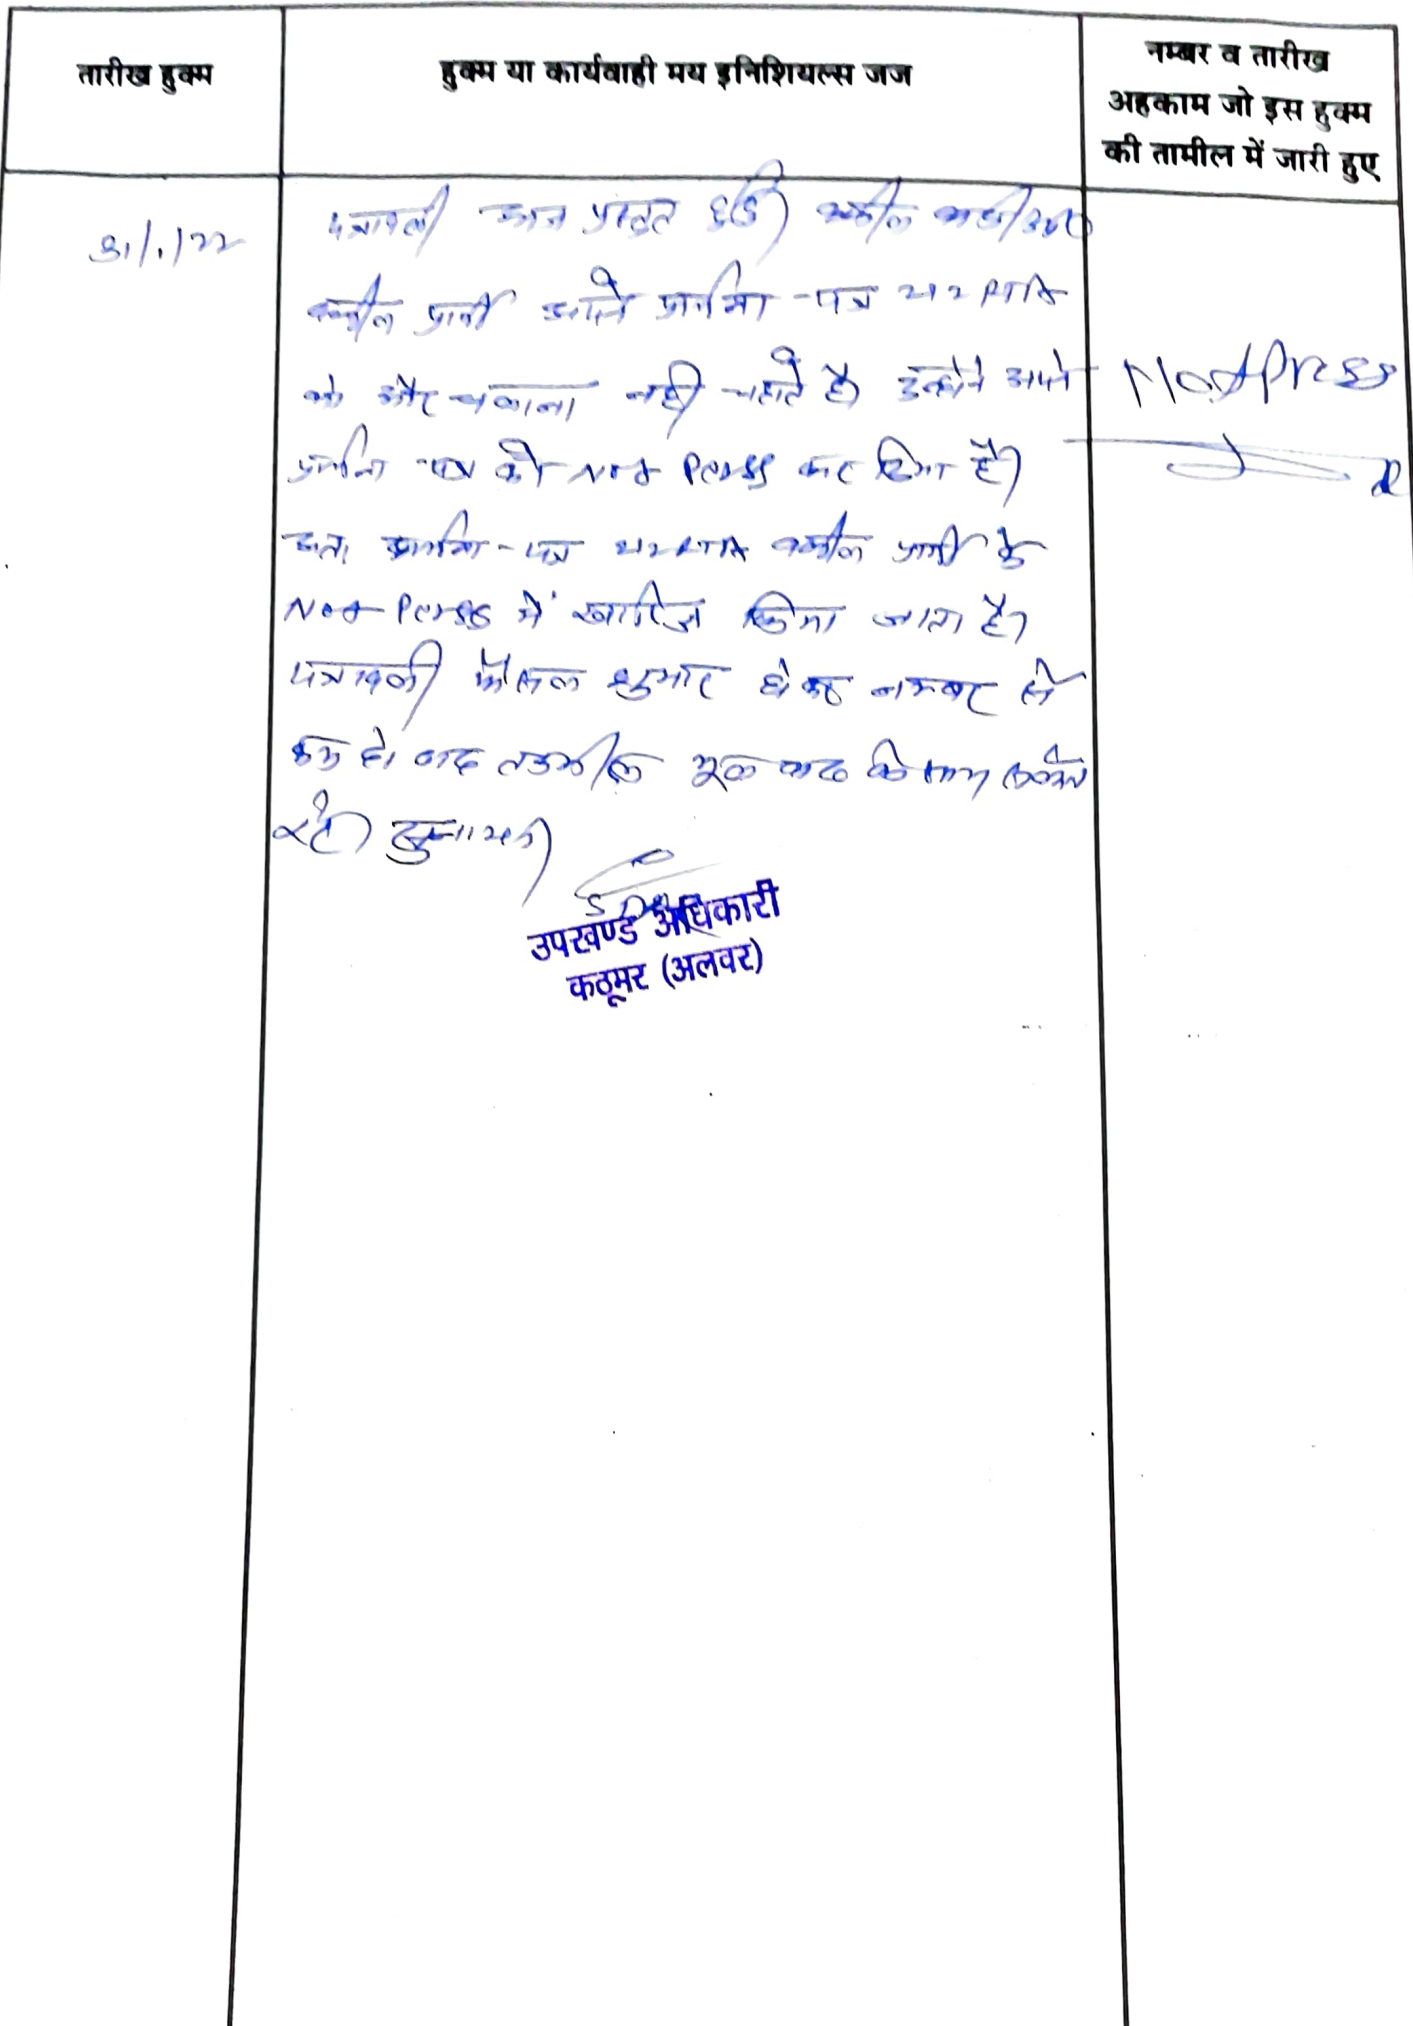 तारीख हुक्म
हुक्म या कार्यवाही मय इनिशियल्स जज
नम्बर व तारीख
अहकाम जो इस हुक्म
की तामील में जारी हुए
31/1/22
पत्रावली आज प्रस्तुत हुई। वकील
वकील प्रार्थी अपने प्रार्थना-पत्र
को और चलाना नही चाहते है। उन्होने अपने
प्रार्थना पत्र को Not Perss कर दिया है।
अतः प्रार्थना-पत्र वकील प्रार्थी के
Not Perss में खारिज किया जाता है।
पत्रावली फैसल शुमार होकर नम्बर से
कम हो। बाद तकमील मूल वाद के साथ
रहे।
Not Press
SDO
उपखण्ड अधिकारी
कठूमर (अलवर)